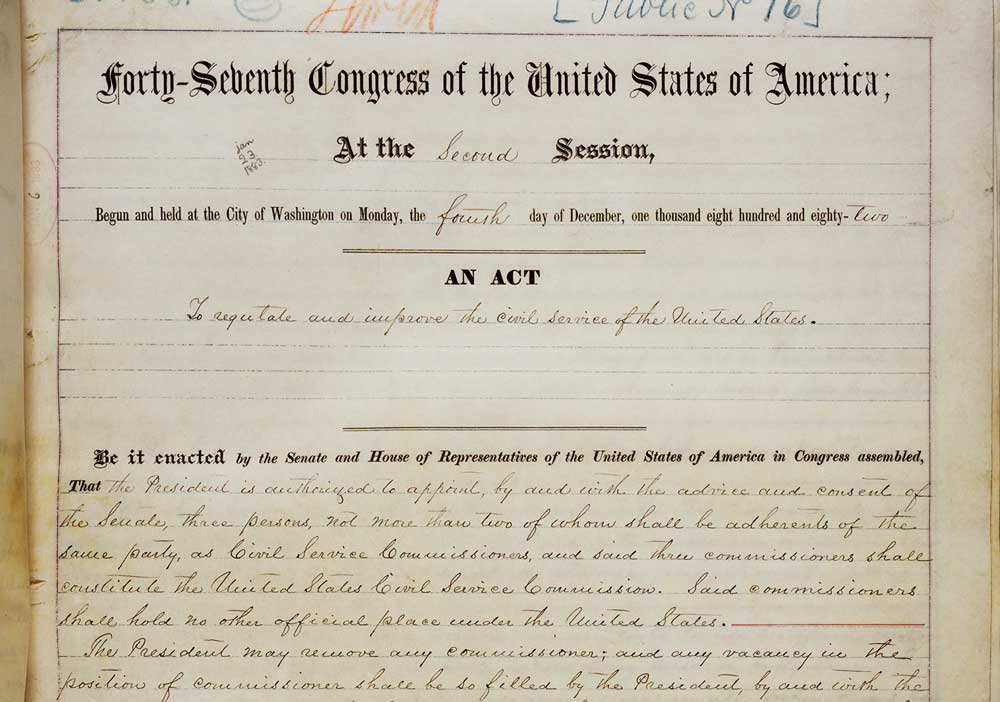 [Public No 16]
Forty-Seventh Congress of the United States of America;
Jan
1883.
At the Second Session,
Begun and held at the City of Washington on Monday, the fourth day of December, one thousand eight hundred and eighty-two
AN ACT
To regulate and improve the civil service of the United States.
Be it enacted by the Senate and House of Representatives of the United States of America in Congress assembled,
That the President is authorized to appoint, by and with the advice and consent of
the Senate, three persons, not more than two of whom shall be adherents of the
same party, as Civil Service Commissioners, and said three commissioners shall
constitute the United States Civil Service Commission. Said commissioners
shall hold no other official place under the United States.
The President may remove any commissioner; and any vacancy in the
position of commissioner shall be so filled by the President, by and with the